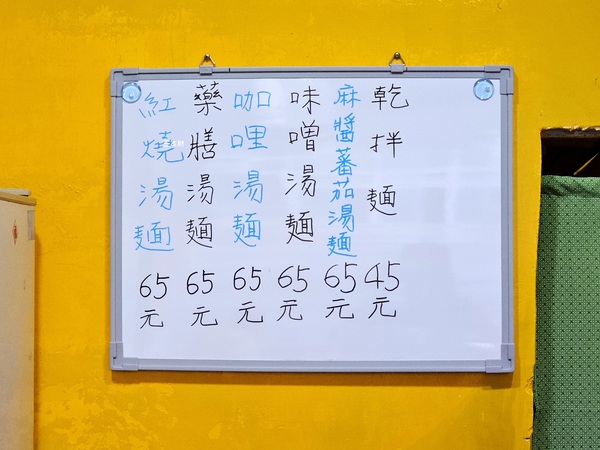 乾拌麵 45元
麻醬蕃茄湯麵 65元
味噌湯麵 65元
咖哩湯麵 65元
藥膳湯麵 65元
紅燒湯麵 65元